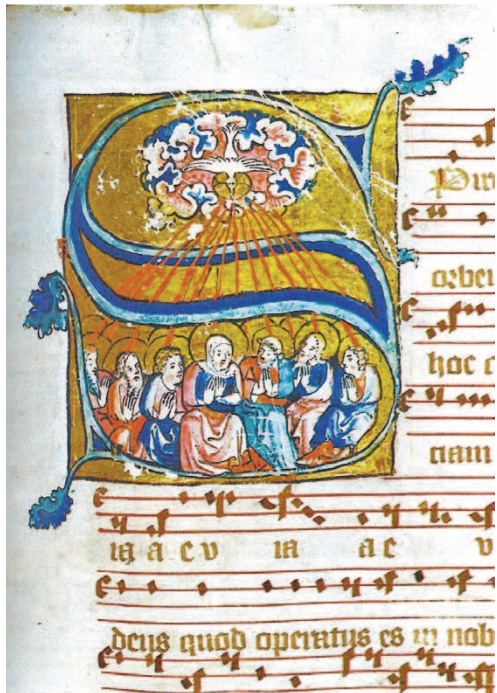 Spiri
orbe
hoc c
tiam
ia a e v ia a e v
deus quod operatus es in nob